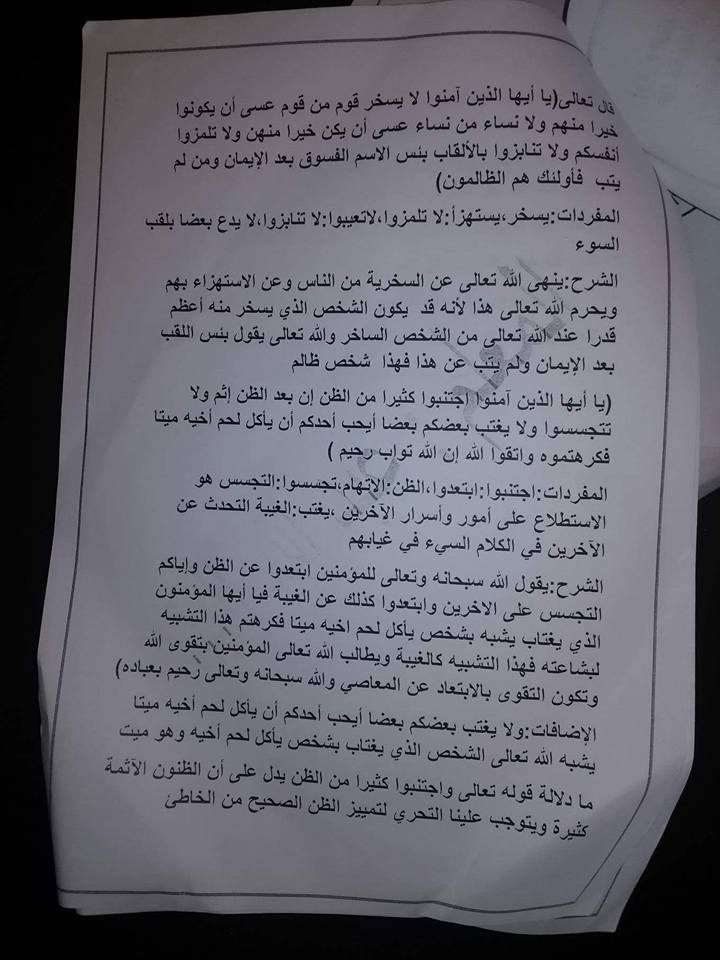 قال تعالى(يا أيها الذين آمنوا لا يسخر قوم من قوم عسى أن يكونوا
خيرا منهم ولا نساء من نساء عسى أن يكن خيرا منهن ولا تلمزوا
أنفسكم ولا تنابزوا بالألقاب بئس الاسم الفسوق بعد الإيمان ومن لم
يتب فأولئك هم الظالمون)
المفردات:يسخر،يستهزأ:لا تلمزوا،لاتعيبوا:لا تنابزوا،لا يدع بعضا بلقب
السوء
الشرح:ينهى الله تعالى عن السخرية من الناس وعن الاستهزاء بهم
ويحرم الله تعالى هذا لأنه قد يكون الشخص الذي يسخر منه أعظم
قدرا عند الله تعالى من الشخص الساخر والله تعالى يقول بئس اللقب
بعد الإيمان ولم يتب عن هذا فهذا شخص ظالم
(يا أيها الذين آمنوا اجتنبوا كثيرا من الظن إن بعد الظن إثم ولا
تتجسسوا ولا يغتب بعضكم بعضا أيحب أحدكم أن يأكل لحم أخيه ميتا
فكرهتموه واتقوا الله إن الله تواب رحيم )
المفردات:اجتنبوا:ابتعدوا،الظن:الإتهام،تجسسوا:التجسس هو
الاستطلاع على أمور وأسرار الآخرين ،يغتب:الغيبة التحدث عن
الآخرين في الكلام السيء في غيابهم
الشرح:يقول الله سبحانه وتعالى للمؤمنين ابتعدوا عن الظن وإياكم
التجسس على الاخرين وابتعدوا كذلك عن الغيبة فيا أيها المؤمنون
الذي يغتاب يشبه بشخص يأكل لحم اخيه ميتا فكرهتم هذا التشبيه
لبشاعته فهذا التشبيه كالغيبة ويطالب الله تعالى المؤمنين بتقوى الله
وتكون التقوى بالابتعاد عن المعاصي والله سبحانه وتعالى رحيم بعباده)
الإضافات:ولا يغتب بعضكم بعضا أيحب أحدكم أن يأكل لحم أخيه ميتا
يشبه الله تعالى الشخص الذي يغتاب بشخص يأكل لحم أخيه وهو ميت
ما دلالة قوله تعالى واجتنبوا كثيرا من الظن يدل على أن الظنون الآثمة
كثيرة ويتوجب علينا التحري لتمييز الظن الصحيح من الخاطئ